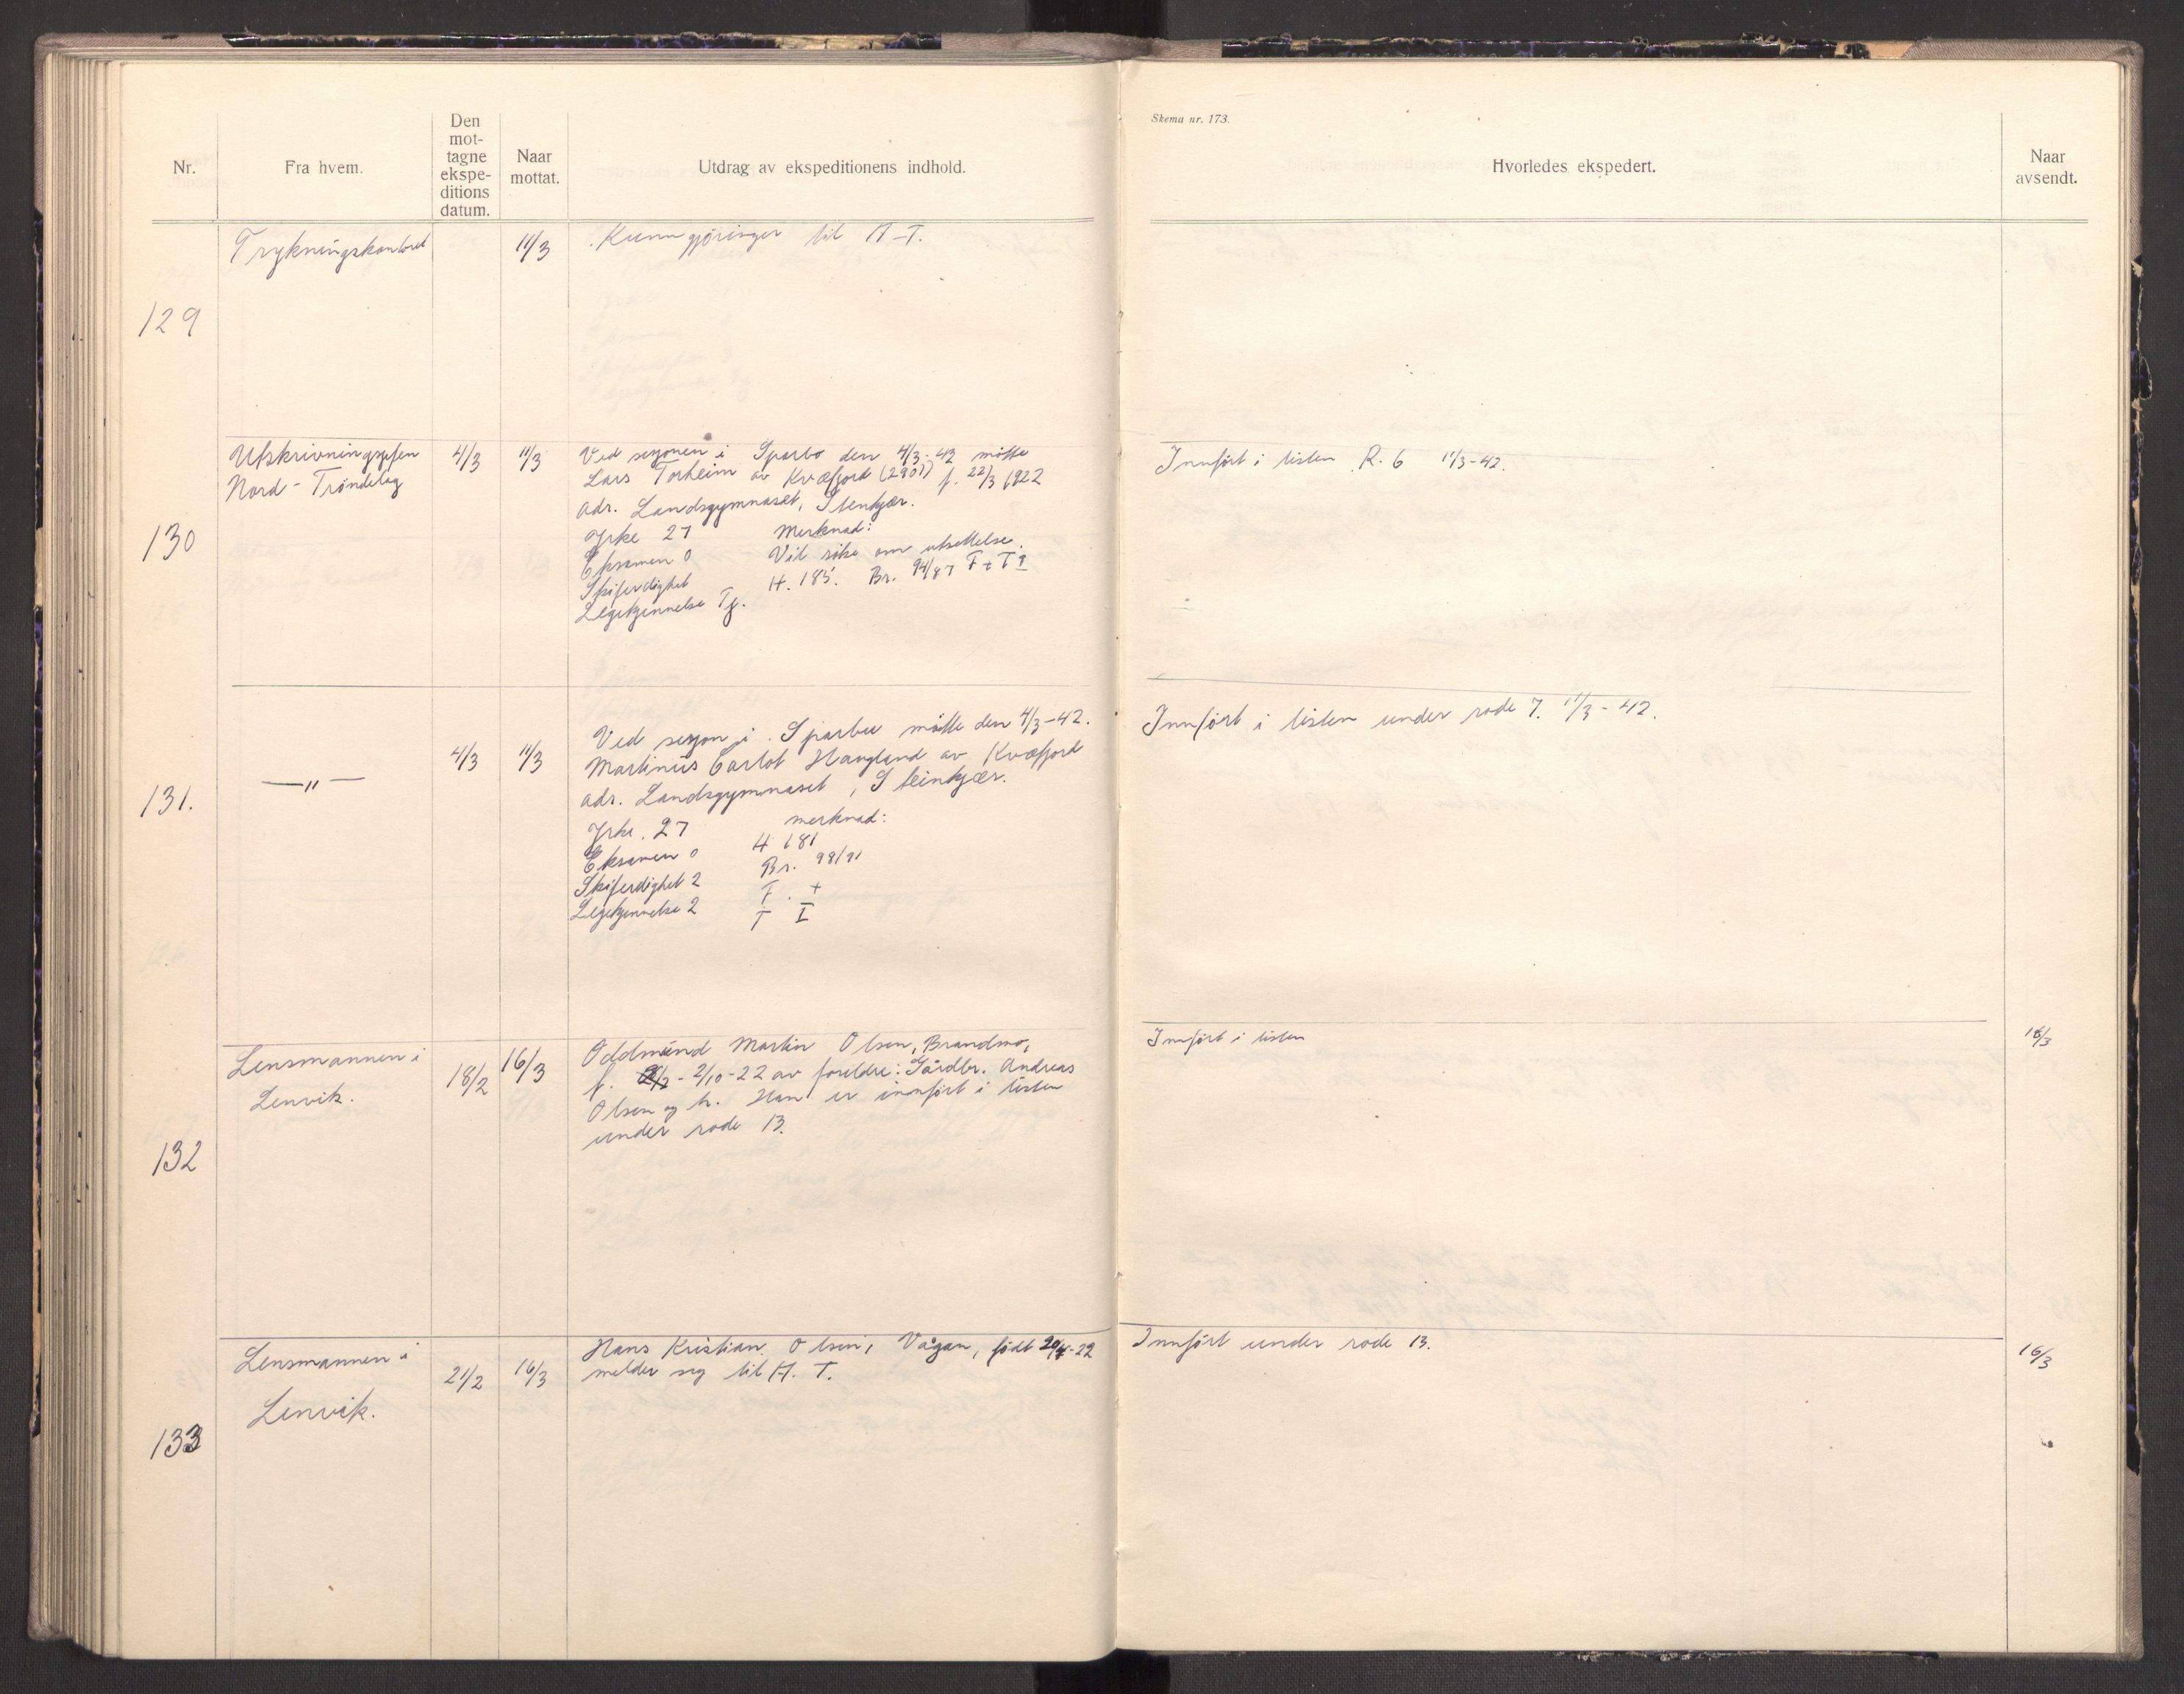 Skema nr. 173.
Nr.
Fra hvem.
Den
mot-
tagne
ekspe-
ditions
datum.
Naar
mottat.
Utdrag av ekspeditionens indhold.
Hvorledes ekspedert.
Naar
avsendt.
129
Trykningskontoret
11/3
Kunngjöringer til A-T.
130
Utskrivningssjefen
Nord-Tröndelag
4/3
11/3
Ved sesjonen i Sparbo den 4/3-42 møtte
Lars Torheim av Kvæfjord (2901) f. 22/3 1922
adr. Landsgymnaset, Stenkjær.
Yrke 27 Merknad:
Eksamen 0 Vil söke om utsettelse.
Skiferdighet H. 185. Br. 94/87 F + T
Legekjennelse Tj.
Innfört i listen R. 6 11/3-42.
131.
— " —
4/3
11/3
Ved sesjon i Sparbu møtte den 4/3-42.
Martinus Carlot Haugland av Kvæfjord
adr. Landsgymnaset, Steinkjær.
Yrke. 27 merknad:
Eksamen 0 H 181
Skiferdighet 2 Br. 98/91
Legekjennelse 2 F. +
T I
Innfört i listen under rode 7. 11/3-42.
132
Lensmannen i
Lenvik.
18/2
16/3
Oddmund Martin Olsen, Brandmo,
f. 2/10-22 av foreldre: Gårdbr. Andreas
Olsen og h. Han er innfört i listen
under rode 13.
Innfört i listen
16/3
133
Lensmannen i
Lenvik.
21/2
16/3
Hans Kristian Olsen, Vågan, födt 20/4-22
melder seg til A. T.
Innfört under rode 13.
16/3